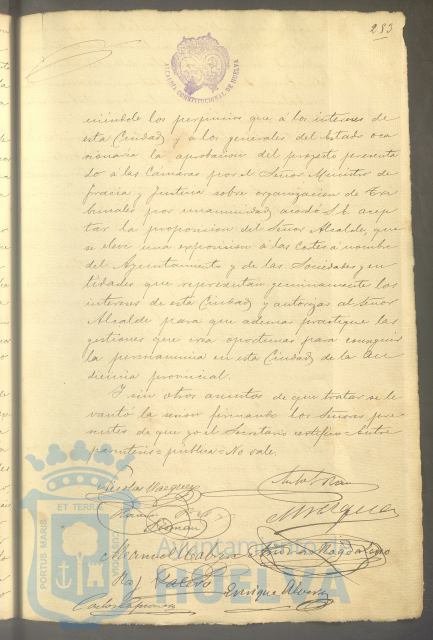 283
ALCALDIA CONSTITUCIONAL DE HUELVA
los perjuicios que á los intereses de
esta Ciudad y á los generales del Estado oca
sionaria la aprobacion del proyecto presenta
do á las Cámaras por el Señor Ministro de
Gracia y Justicia sobre organizacion de Tri
bunales por unanimidad acordó S.E. acep
tar la proposicion del Señor Alcalde, que
se eleve una exposicion á las Cortes á nombre
del Ayuntamiento y de las Sociedades y en
tidades que representan genuinamente los
intereses de esta Ciudad y autorizar al Señor
Alcalde para que ademas practique las
gestiones que crea oportunas para conseguir
la permanencia en esta Ciudad de la Au
diencia provincial.
Y sin otros asuntos de que tratar se le
vantó la sesion firmando los Señores pre
sentes de que yo el Secretario certifico = Entre
parentesis = publica = No vale.
Nicolas Vazquez
Manuel
Antonio Magdaleno
Enrique
Carlos
PORTUS MARIS ET TERRAE CUSTODIA
Ayuntamiento de
HUELVA